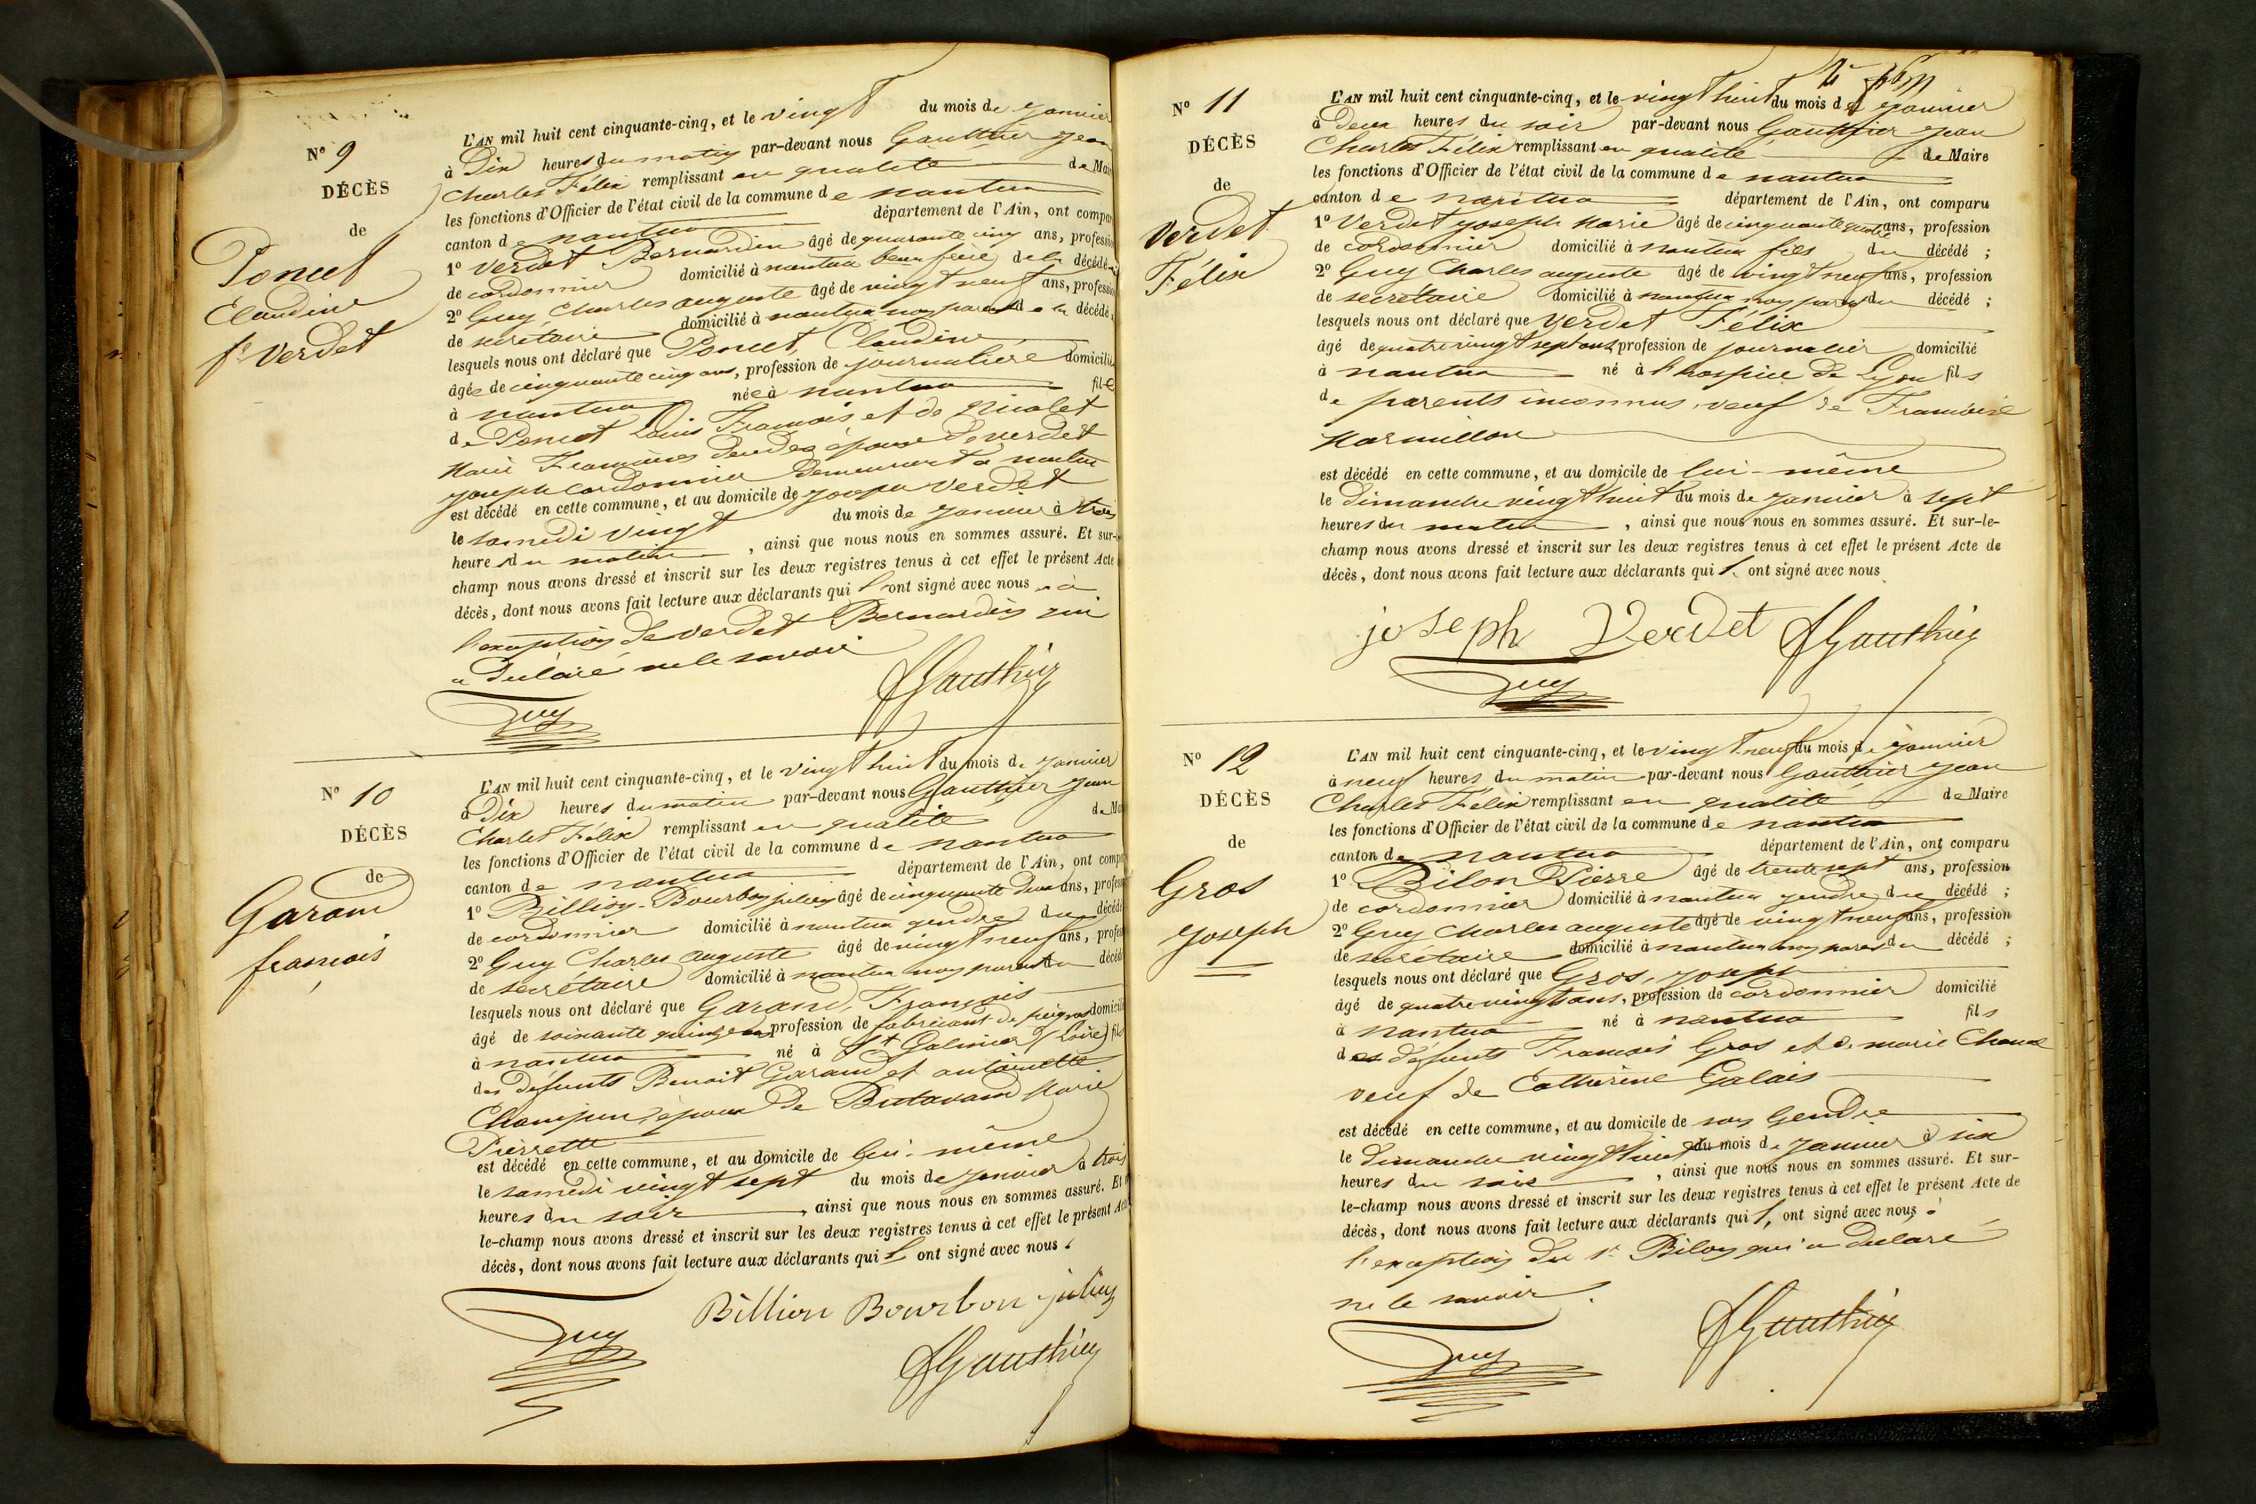 Nº 9
DÉCÈS
de
Poncet
Claudine
fe Verdet
L'AN mil huit cent cinquante-cinq, et le vingt du mois de janvier
à Dix heures du matin par-devant nous Gauthier Jean
Charles Félix remplissant en qualité de Mai
les fonctions d'Officier de l'état civil de la commune de nantua
canton de nantua département de l'Ain, ont compar
1º Verdet Bernardin âgé de quarante cinq ans, professio
de cordonnier domicilié à nantua beau frère de la décédée
2º Guy Charles auguste âgé de vingt neuf ans, professio
de secrétaire domicilié à nantua non parent de la décédé
lesquels nous ont déclaré que Poncet, Claudine
âgée de cinquante cinq ans, profession de journalière domicilié
à nantua née à nantua fille
de Poncet Louis François et de Nicolet
Marie Françoise décédés épouse de verdet
joseph cordonnier demeurant à nantua
est décédé en cette commune, et au domicile de joseph Verdet
le samedi vingt du mois de janvier à trois
heures du matin, ainsi que nous nous en sommes assuré. Et sur-
champ nous avons dressé et inscrit sur les deux registres tenus à cet effet le présent Acte
décès, dont nous avons fait lecture aux déclarants qui l'ont signé avec nous à
l'exception de verdet Bernardin qui
a déclaré ne le savoir
Guy
fGauthier
Nº 10
DÉCÈS
de
Garand
françois
L'AN mil huit cent cinquante-cinq, et le vingt huit du mois de janvier
à Dix heures du matin par-devant nous Gauthier Jean
Charles Félix remplissant en qualité de Ma
les fonctions d'Officier de l'état civil de la commune de nantua
canton de nantua département de l'Ain, ont compa
1º Billion-Bourbon julien âgé de cinquante deux ans, profess
de cordonnier domicilié à nantua gendre du décédé
2º Guy Charles auguste âgé de vingt neuf ans, profes
de secrétaire domicilié à nantua non parent du décéd
lesquels nous ont déclaré que Garand, François
âgé de soixante quinze ans profession de fabricant de peignes domicili
à nantua né à St Galmier (Loire) fils
des défunts Benoit Garand et antoinette
époux de Marie
Pierrette
est décédé en cette commune, et au domicile de lui-même
le samedi vingt sept du mois de janvier à trois
heures du soir, ainsi que nous nous en sommes assuré. Et
le-champ nous avons dressé et inscrit sur les deux registres tenus à cet effet le présent Acte
décès, dont nous avons fait lecture aux déclarants qui l'ont signé avec nous.
Billion Bourbon julien
Guy
fGauthier
Nº 11
DÉCÈS
de
Verdet
Félix
L'AN mil huit cent cinquante-cinq, et le vingt huit du mois de janvier
à Deux heures du soir par-devant nous Gauthier Jean
Charles Félix remplissant en qualité de Maire
les fonctions d'Officier de l'état civil de la commune de nantua
canton de nantua département de l'Ain, ont comparu
1º Verdet joseph Marie âgé de cinquante quatre ans, profession
de cordonnier domicilié à nantua fils du décédé ;
2º Guy Charles auguste âgé de vingt neuf ans, profession
de secrétaire domicilié à nantua non parent du décédé ;
lesquels nous ont déclaré que Verdet Félix
âgé de quatre vingt sept ans, profession de journalier domicilié
à nantua né à l'hospice de Lyon fils
de parents inconnus, veuf de Françoise
Marmillon
est décédé en cette commune, et au domicile de lui-même
le Dimanche vingt huit du mois de janvier à sept
heures du matin, ainsi que nous nous en sommes assuré. Et sur-le-
champ nous avons dressé et inscrit sur les deux registres tenus à cet effet le présent Acte de
décès, dont nous avons fait lecture aux déclarants qui l'ont signé avec nous
joseph Verdet fGauthier
Guy
Nº 12
DÉCÈS
de
Gros
joseph
L'AN mil huit cent cinquante-cinq, et le vingt neuf du mois de janvier
à neuf heures du matin par-devant nous Gauthier Jean
Charles Félix remplissant en qualité de Maire
les fonctions d'Officier de l'état civil de la commune de nantua
canton de nantua département de l'Ain, ont comparu
1º Bilon Pierre âgé de trente sept ans, profession
de cordonnier domicilié à nantua gendre du décédé ;
2º Guy Charles auguste âgé de vingt neuf ans, profession
de secrétaire domicilié à nantua non parent du décédé ;
lesquels nous ont déclaré que Gros, joseph
âgé de quatre vingt ans, profession de cordonnier domicilié
à nantua né à nantua fils
des défunts François Gros et de marie
veuf de Catherine Galais
est décédé en cette commune, et au domicile de son Gendre
le Dimanche vingt huit du mois de janvier à six
heures du soir, ainsi que nous nous en sommes assuré. Et sur-
le-champ nous avons dressé et inscrit sur les deux registres tenus à cet effet le présent Acte de
décès, dont nous avons fait lecture aux déclarants qui l'ont signé avec nous à
l'exception du sr Bilon qui a déclaré
ne le savoir.
Guy
fGauthier